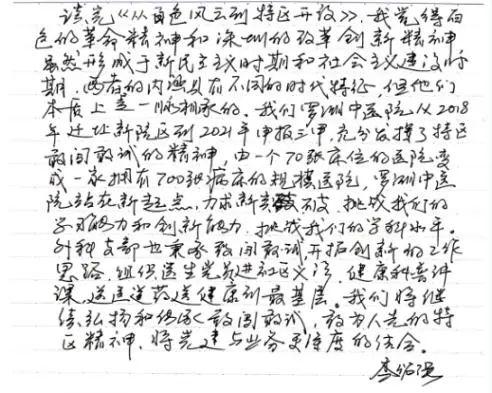 读完《从百色风云到特区开放》，我觉得百
色的革命精神和深圳的改革创新精神
虽然形成于新民主主义时期和社会主义建设时
期，两者的内涵具有不同的时代特征，但他们
本质上是一脉相承的。我们罗湖中医院从2018
年迁址新院区到2021年申报三甲，充分发挥了特区
敢闯敢试的精神，由一个70张床位的医院变
成一家拥有700张病床的规模医院，罗湖中医
院站在新起点，力求新突破，挑战我们的
学习能力和创新能力，挑战我们的学科水平。
外科支部也秉承敢闯敢试，开拓创新的工作
思路，组织医生党员进社区义诊，健康科普讲
课，送医送药送健康到最基层。我们将继
续弘扬和传承敢闯敢试，敢为人先的特
区精神，将党建与业务更深度的结合。
李